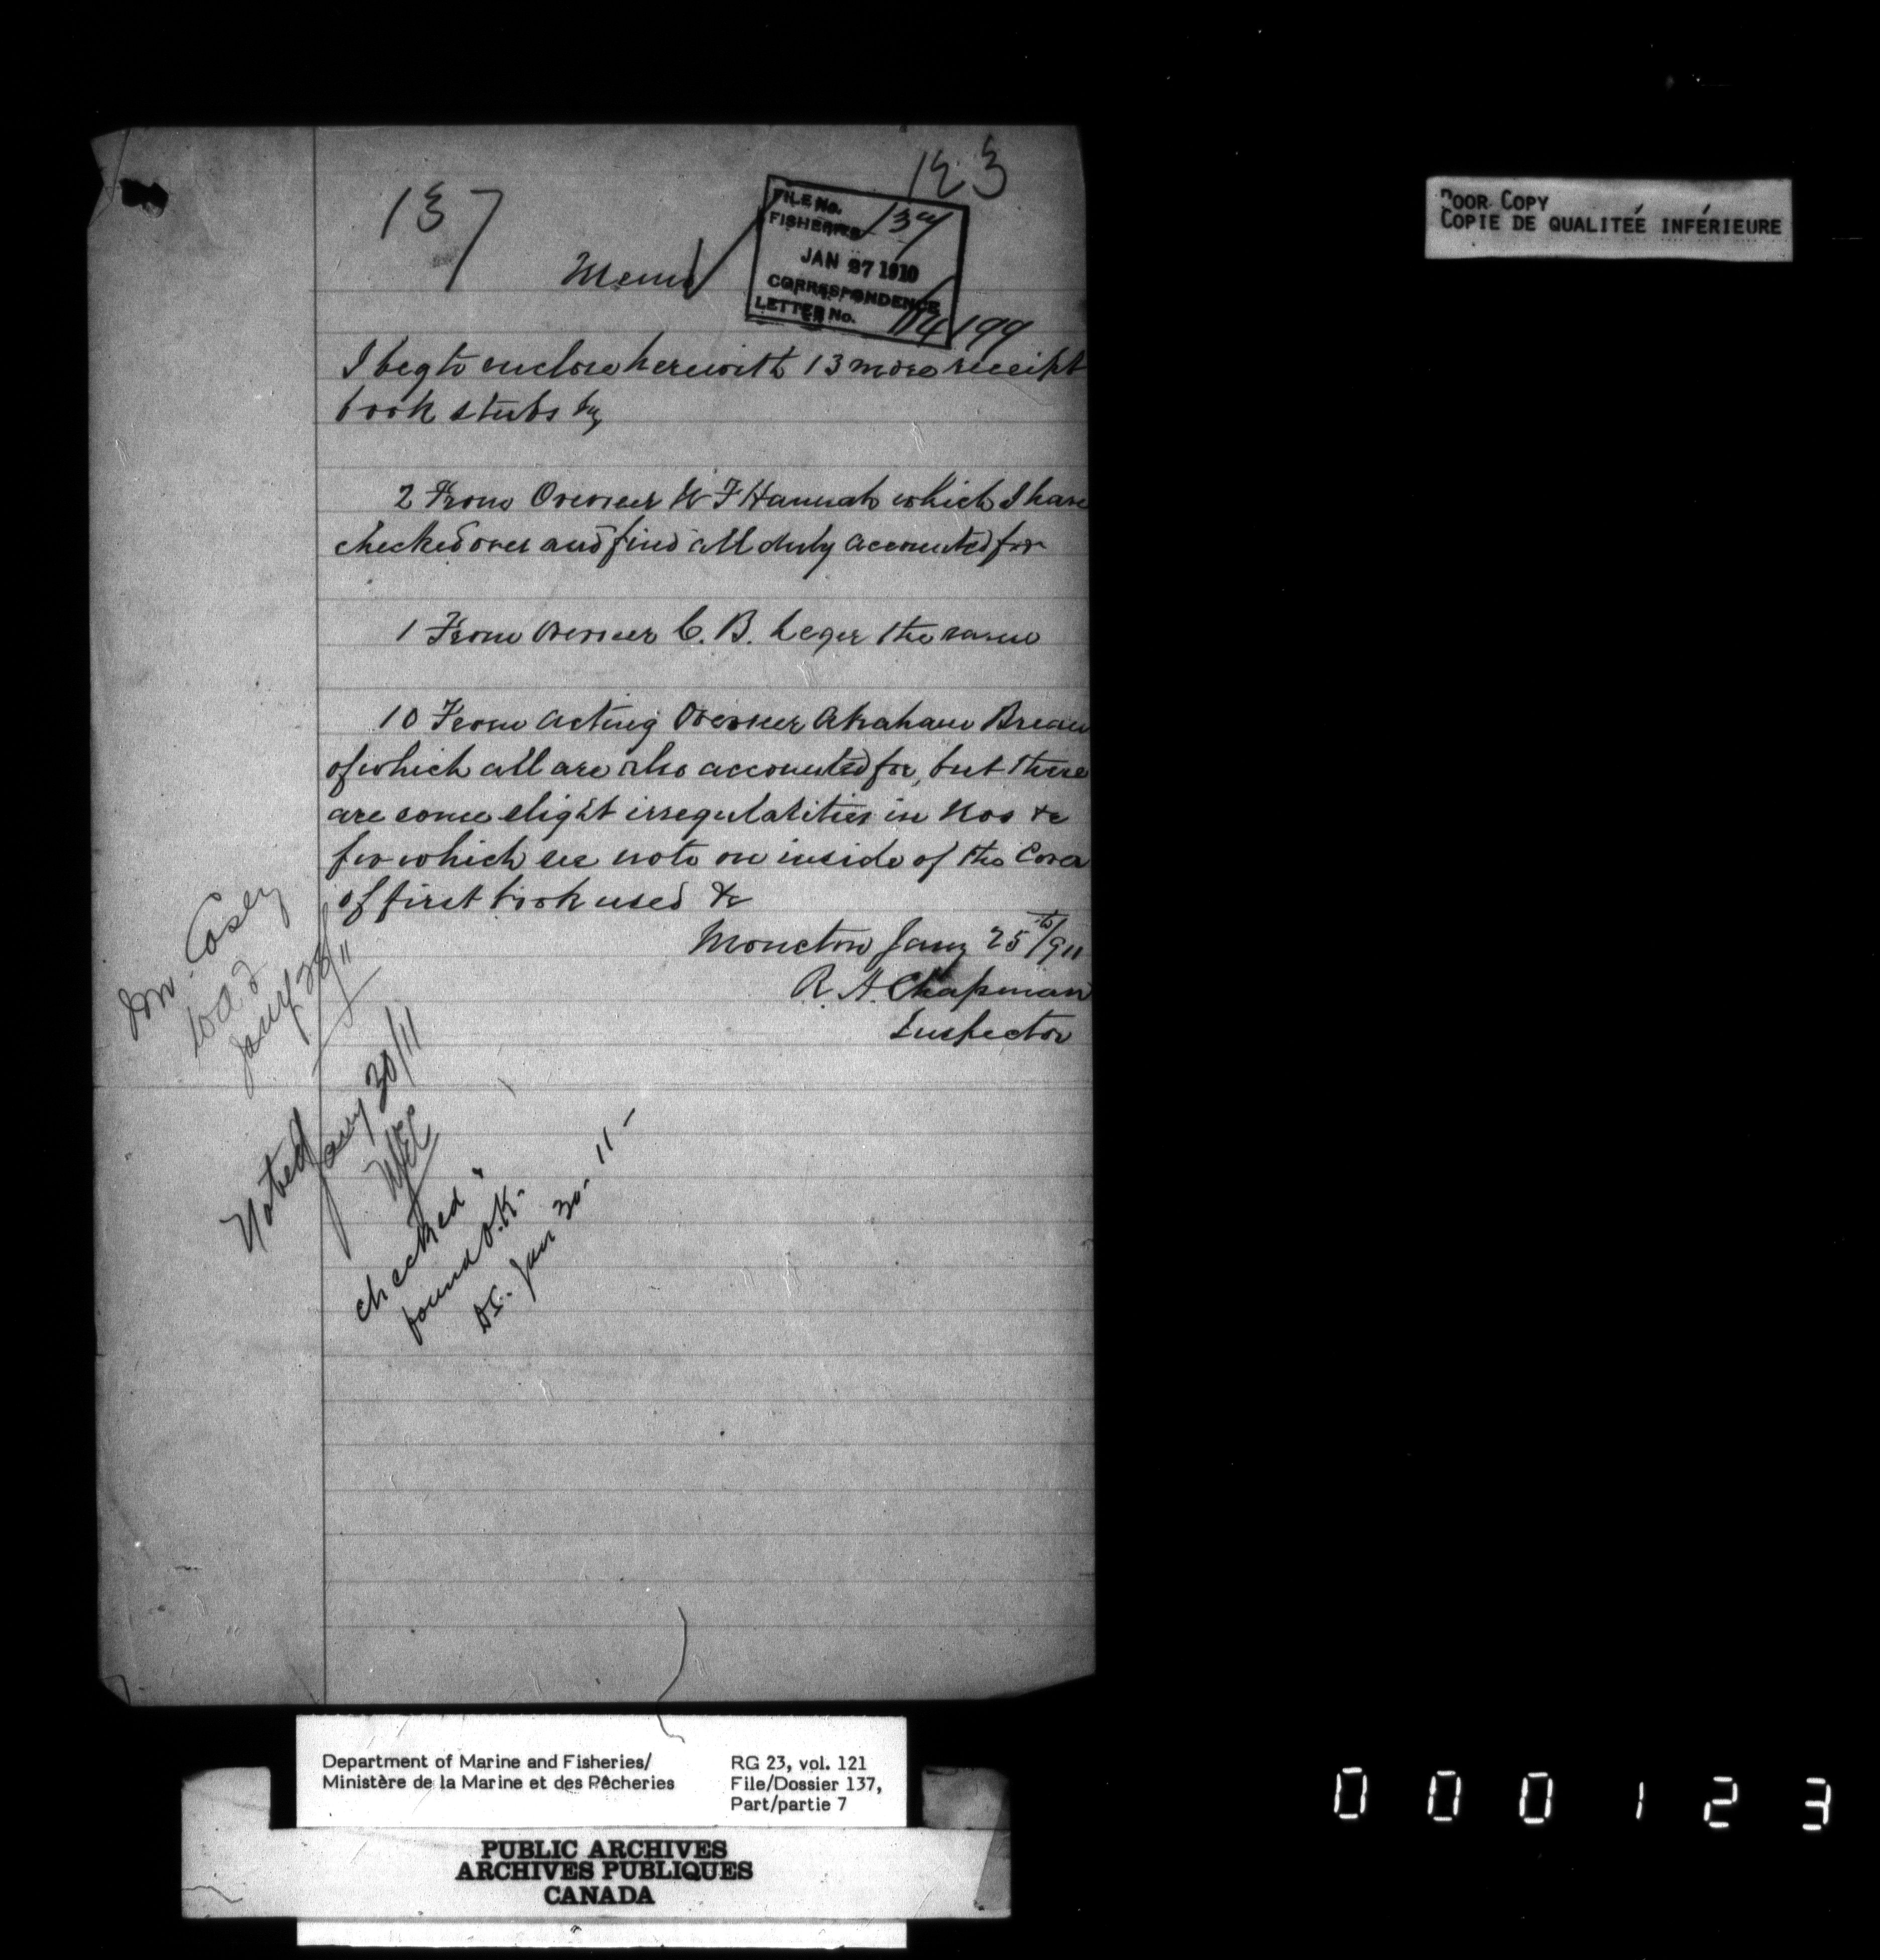 123
137
FILE No.
FISHERIES 137
JAN 27 1910
CORRESPONDENCE
LETTER No. 199
Memo
I beg to enclose herewith 13 more receipt
book stubs by
2 From Overseer W F Hannah which I have
checked over and find all duly accounted for
1 From Overseer C. B. Leger the same
10 From Acting Overseer Abraham Breau
of which all are also accounted for, but there
are some slight irregularities in Nos &c
for which see note on inside of the Cover
of first book used &c
Moncton Jany 25th/911
R. A. Chapman
Inspector
Mr. Casey
Jany 28/11
Noted Jany 30/11
checked
found O.K.
Jan 30-11-
POOR COPY
COPIE DE QUALITEÉ INFÉRIEURE
Department of Marine and Fisheries/
Ministère de la Marine et des Pêcheries
RG 23, vol. 121
File/Dossier 137,
Part/partie 7
PUBLIC ARCHIVES
ARCHIVES PUBLIQUES
CANADA
000123